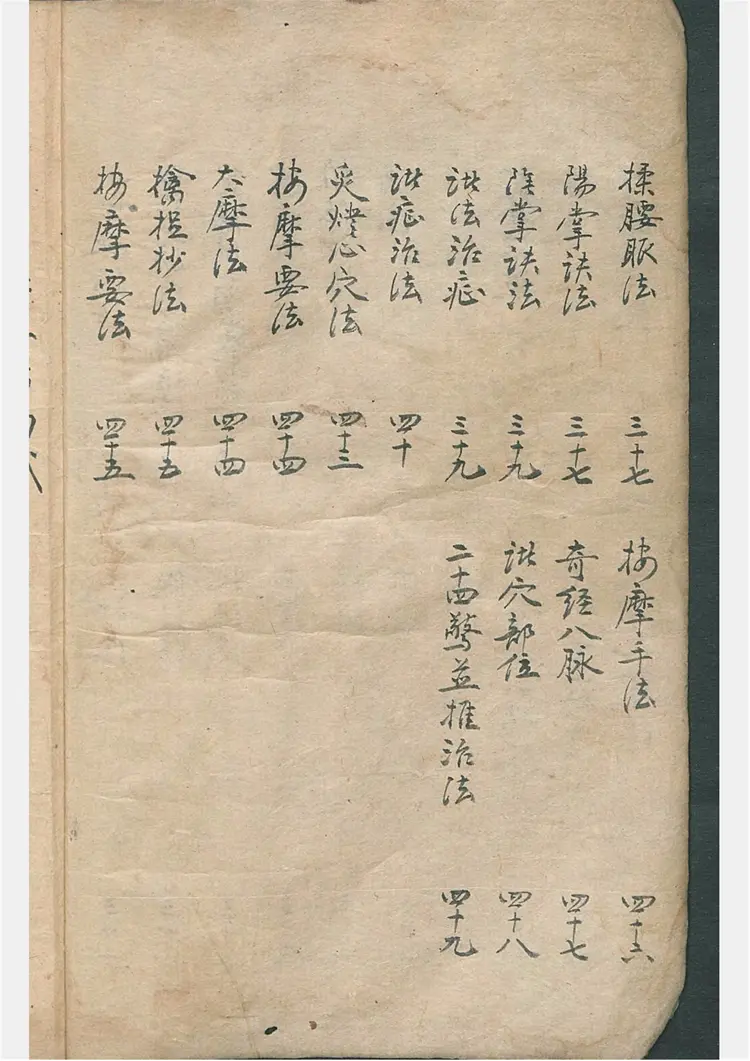 揉腰眼法 三十七
陽掌訣法 三十七
陰掌訣法 三十九
諸法治症 三十九
諸症治法 四十
灸燈心穴法 四十三
按摩要法 四十四
大摩法 四十四
擒捏抄法 四十五
按摩要法 四十五
按摩手法 四十六
奇經八脉 四十七
諸穴部位 四十八
二十四驚並推治法 四十九